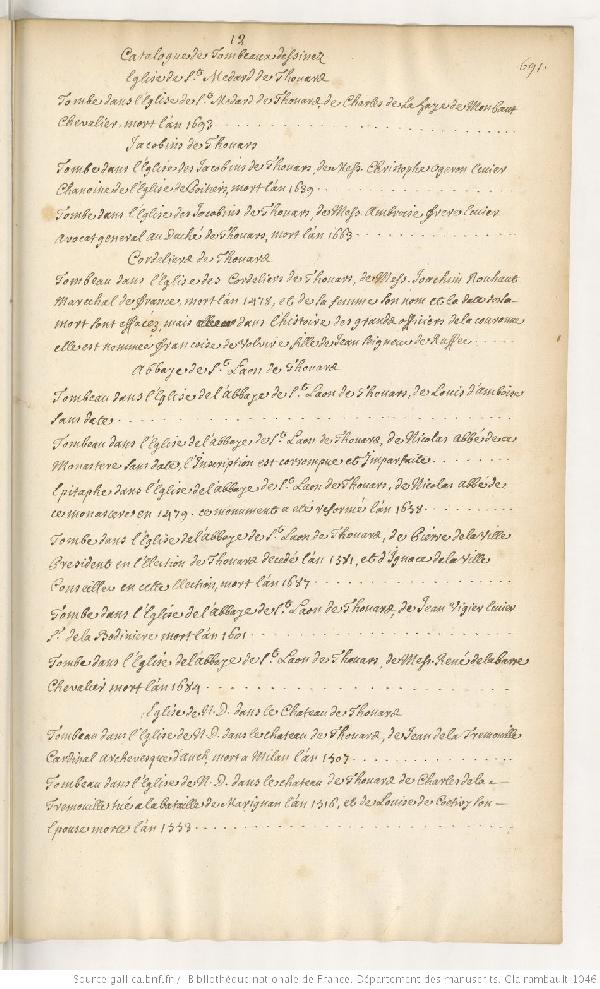 12
691.
Catalogue de Tombeaux dessinez
Eglise de St. Medard de Thouars
Tombe dans l'Eglise de St. Medard de Thouars de Charles de la Haye de Monbaut
Chevalier, mort l'an 1693
Jacobins de Thouars
Tombe dans l'Eglise des Jacobins de Thouars, de Mess. Christophe Ogeron Ecuier
Chanoine de l'Eglise de Poitiers, mort l'an 1639
Tombe dans l'Eglise des Jacobins de Thouars, de Mess. Ambroise frere Ecuier
Avocat general au Duché de Thouars, mort l'an 1663
Cordeliers de Thouars
Tombeau dans l'Eglise des Cordeliers de Thouars, de Mess. Joachim Rouhaut
Marechal de france, mort l'an 1478, et de sa femme son nom et la date de sa
mort sont effacez, mais dans l'histoire des grands officiers de la couronne
elle est nommée francoise de Volvire fille de Jean Signeur de Ruffec
Abbaye de St. Laon de Thouars
Tombeau dans l'Eglise de l'Abbaye de St. Laon de Thouars, de Louis d'Amboise
sans date
Tombeau dans l'Eglise de l'abbaye de St. Laon de Thouars, de Nicolas Abbé de ce
Monastere sans date, l'Inscription est corrompue et Imparfaite
Epitaphe dans l'Eglise de l'abbaye de St. Laon de Thouars, de Nicolas Abbé de
ce monastere en 1479. ce monument a eté reformé l'an 1658
Tombe dans l'Eglise de l'Abbaye de St. Laon de Thouars, de Pierre de la Ville
President en l'Election de Thouars decedé l'an 1581, et d'Ignace de la Ville
Conseiller en cette Election, mort l'an 1687
Tombe dans l'Eglise de l'abbaye de St. Laon de Thouars, de Jean Vigier Ecuier
Sr. de la Bodiniere mort l'an 1601
Tombe dans l'Eglise de l'abbaye de St. Laon de Thouars, de Mess. René de la barre
Chevalier mort l'an 1684
Eglise de N. D. dans le Chateau de Thouars
Tombeau dans l'Eglise de N. D. dans le chateau de Thouars, de Jean de la Tremouille
Cardinal Archevesque d'auch, mort a Milan l'an 1507
Tombeau dans l'Eglise de N. D. dans le chateau de Thouars de Charles de la
Tremouille tué a la bataille de Marignan l'an 1516, et de Louise de Coetivy son
Epouse morte l'an 1553
Source gallica.bnf.fr / Bibliothèque nationale de France. Département des manuscrits. Clairambault 1046